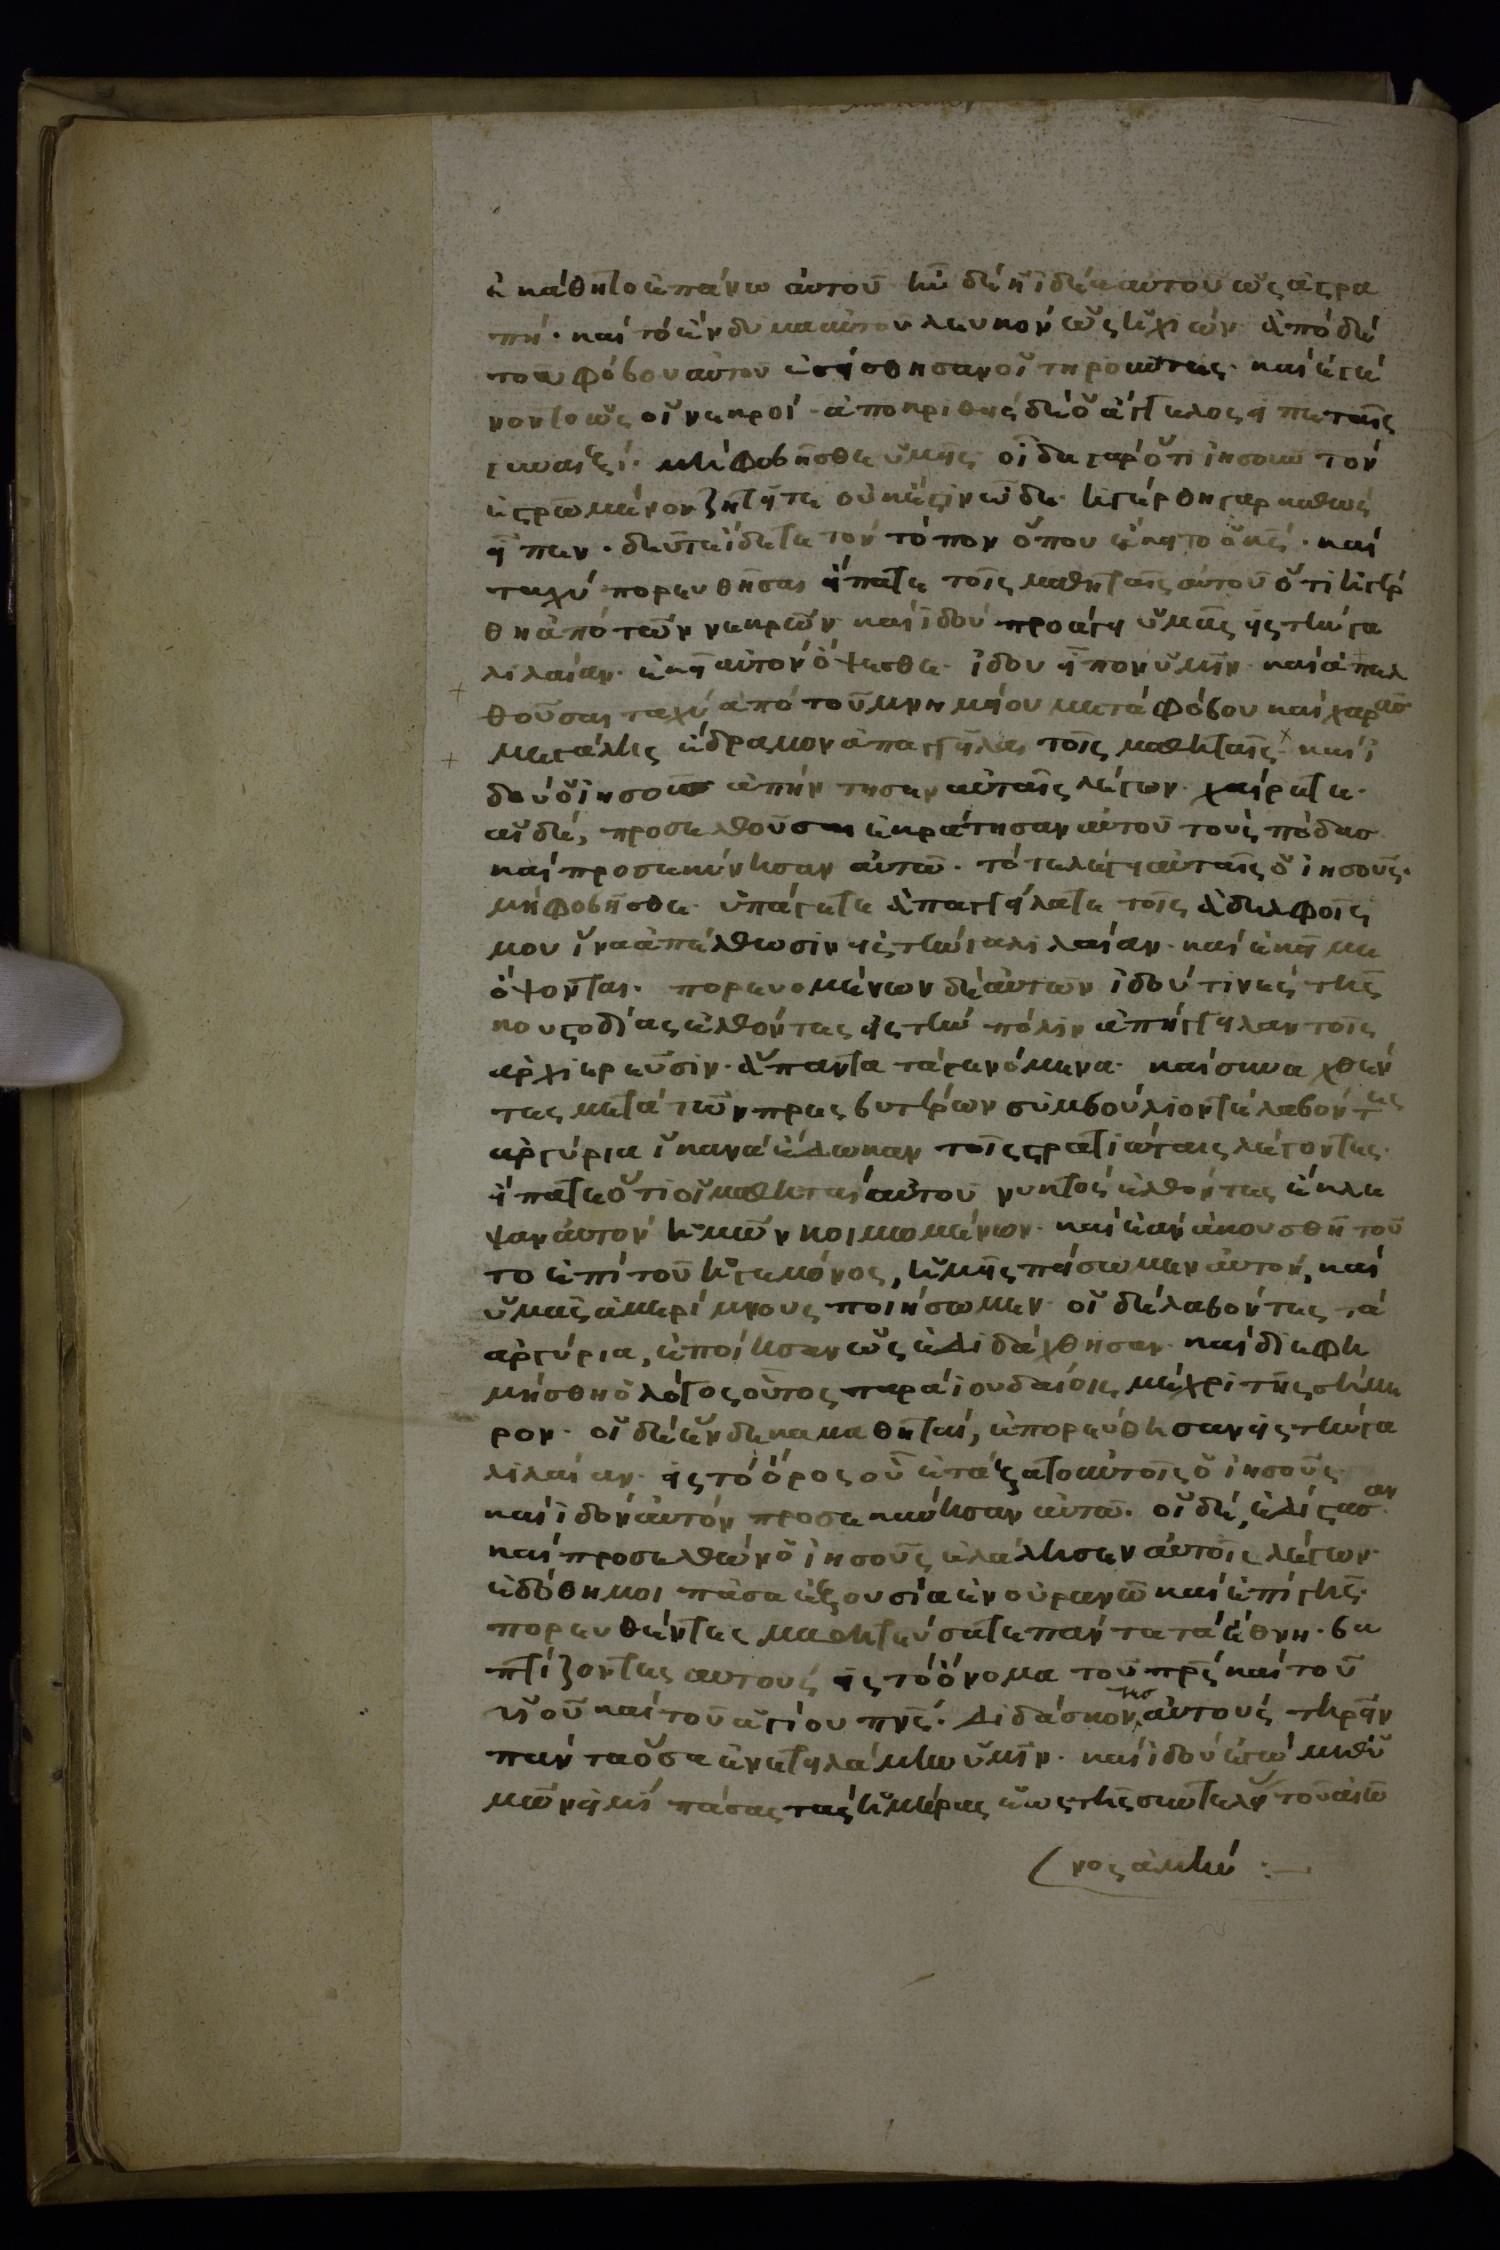 ἐκάθητο ἐπάνω ἀυτοῦ ἦν δὲ ἡ ἰδέα αὐτοῦ ὡς ἀστρα
πή· καὶ τὸ ἔνδυμα αὐτοῦ λευκὸν ὡς ἡ χιών· ἀπὸ δὲ
τοῦ φόβου αὐτοῦ ἐσήσθησαν οἱ τηροῦντες· καὶ ἐγέ
νοντο ὡς οἱ νεκροί· ἀποκριθεὶς δὲ ὁ ἄγγελος εἶπε ταῖς
γυναιξί· μὴ φοβῆσθε ὑμεῖς οἶδα γὰρ ὅτι ἰησοῦν τὸν
ἐστρωμένον ζητεῖτε οὐκ ἔστιν ὧδε· ἠγέρθη γαρ καθὼς
εἶπεν· δεῦτε ἴδετε τὸν τόπον ὅπου ἔκειτο ὁ κς· καὶ
ταχὺ πορευθῆσαι εἴπατε τοῖς μαθηταῖς αὐτοῦ ὅτι ἠγέρ
θη ἀπὸ τῶν νεκρῶν καὶ ἰδοὺ προάγει ὑμᾶς εἰς τὴν γα
λιλαίαν· ἐκεῖ αὐτὸν ὄψεσθε· ἰδου εἶπον ὑμῖν· καὶ ἀπελ
θοῦσαι ταχὺ ἀπὸ τοῦ μνημείου μετὰ φόβου καὶ χαρᾶσ
μεγάλης ἔδραμον ἀπαγγεῖλαι τοῖς μαθηταῖς· καὶ ἰ
δοὺ ὁ ἰησοῦς ἀπήντησεν αὐταῖς λέγων· χαίρετε·
αἱ δὲ, προσελθοῦσαι ἐκράτησαν αὐτοῦ τοὺς πόδασ
καὶ προσεκύνησαν αὐτῶ· τότε λέγει αὐταῖς ὁ ἰησοῦς·
μὴ φοβῆσθε· ὑπάγετε ἀπαγγείλατε τοῖς ἀδελφοῖς
μου ἵνα ἀπέλθωσιν εἰς τὴν γαλιλαίαν· καὶ ἐκεῖ με
ὄψονται· πορευομένων δὲ ἀυτῶν ἰδού τινὲς τῆς
κουστοδίας ἐλθόντες εἰς τὴν πόλιν ἀπήγγειλαν τοῖς
αρχιερεῦσιν· ἅπαντα τὰ γενόμενα· καὶ συναχθέν
τες μετὰ τῶν πρεσβυτέρων συμβούλιον τὲ λαβόντες
αργύρια ἱκανὰ ἔδωκαν τοῖς στρατιώταις λέγοντες·
εἴπατε ὅτι οἱ μαθηταὶ αὐτοῦ νυκτὸς ἐλθόντες ἔκλε
ψαν ἀυτὸν ἡμῶν κοιμωμένων· καὶ ἐὰν ἀκουσθῆ τοῦ
το ἐπὶ τοῦ ἡγεμόνος, ἡμεῖς πείσωμεν ἀυτόν, καὶ
ὑμᾶς ἀμερίμνους ποιήσωμεν· οἱ δὲ λαβόντες τὰ
αργύρια, ἐποίησαν ὡς ἐδιδάχθησαν· καὶ διεφη
μήσθη ὁ λόγος οὗτος παρὰ ἰουδαίοις μέχρι τῆς σήμε
ρον· οἱ δὲ ἕνδεκα μαθηταὶ, ἐπορεύθησαν εἰς τὴν γα
λιλαίαν· εἰς τὸ ὄρος οὗ ἐτάξατο αὐτοῖς ὁ ἰησοῦς
καὶ ἰδὸν ἀυτὸν προσεκύνησαν αὐτῶ· οἱ δὲ, ἐδίστασαν·
καὶ προσελθὼν ὁ ἰησοῦς ἐλάλησεν ἀυτοῖς λέγων·
ἐδόθη μοι πᾶσα ἐξουσία ἐν οὐρανῶ καὶ ἐπὶ γῆς·
πορευθέντες μαθητεύσατε πάντα τὰ ἔθνη· βα
πτίζοντες αυτοὺς εἰς τὸ ὄνομα τοῦ πρς καὶ τοῦ
υἱοῦ καὶ τοῦ ἁγίου πνς· διδάσκοντεσ αὐτοὺς τηρεῖν
πάντα ὅσα ἐνετειλάμην ὑμῖν· καὶ ἰδοὺ ἐγὼ μεθ' ὑ
μῶν εἰμὶ πάσας τὰς ἡμέρας ἕως τῆς συντελεί τοῦ αἰῶ
νος ἀμήν :—